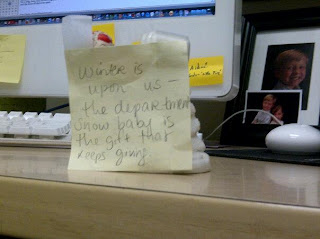 Winter is
upon us —
the department
snow baby is
the gift that
keeps giving.